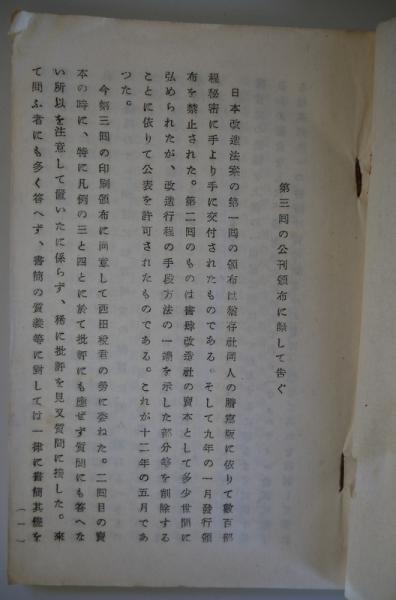 第三回の公刊頒布に際して告ぐ
日本改造法案の第一回の頒布は猶存社同人の謄寫版に依りて數百部
程秘密に手より手に交付されたものである。そして九年の一月發行頒
布を禁止された。第二回のものは書肆改造社の賣本として多少世間に
弘められたが、改造行程の手段方法の一端を示した部分等を削除する
ことに依りて公表を許可されたものである。これが十二年の五月であ
つた。
今第三回の印刷頒布に同意して西田税君の勞に委ねた。二回目の賣
本の時に、特に凡例の三と四とに於て批評にも應ぜず質問にも答へな
い所以を注意して置いたに係らず、稀に批評を見又質問に接した。來
て問ふ者にも多く答へず、書簡の質義等に對しては一律に書簡其儘を
(一)